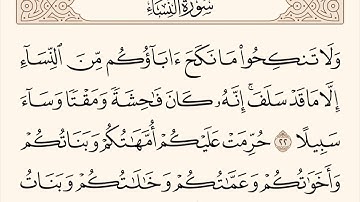 سُورَةُ النِّسَاءِ
وَلَا تَنكِحُوا۟ مَا نَكَحَ ءَابَآؤُكُم مِّنَ ٱلنِّسَآءِ
إِلَّا مَا قَدْ سَلَفَ ۚ إِنَّهُۥ كَانَ فَٰحِشَةً وَمَقْتًا وَسَآءَ
سَبِيلًا ٢٢ حُرِّمَتْ عَلَيْكُمْ أُمَّهَٰتُكُمْ وَبَنَاتُكُمْ
وَأَخَوَٰتُكُمْ وَعَمَّٰتُكُمْ وَخَٰلَٰتُكُمْ وَبَنَاتُ